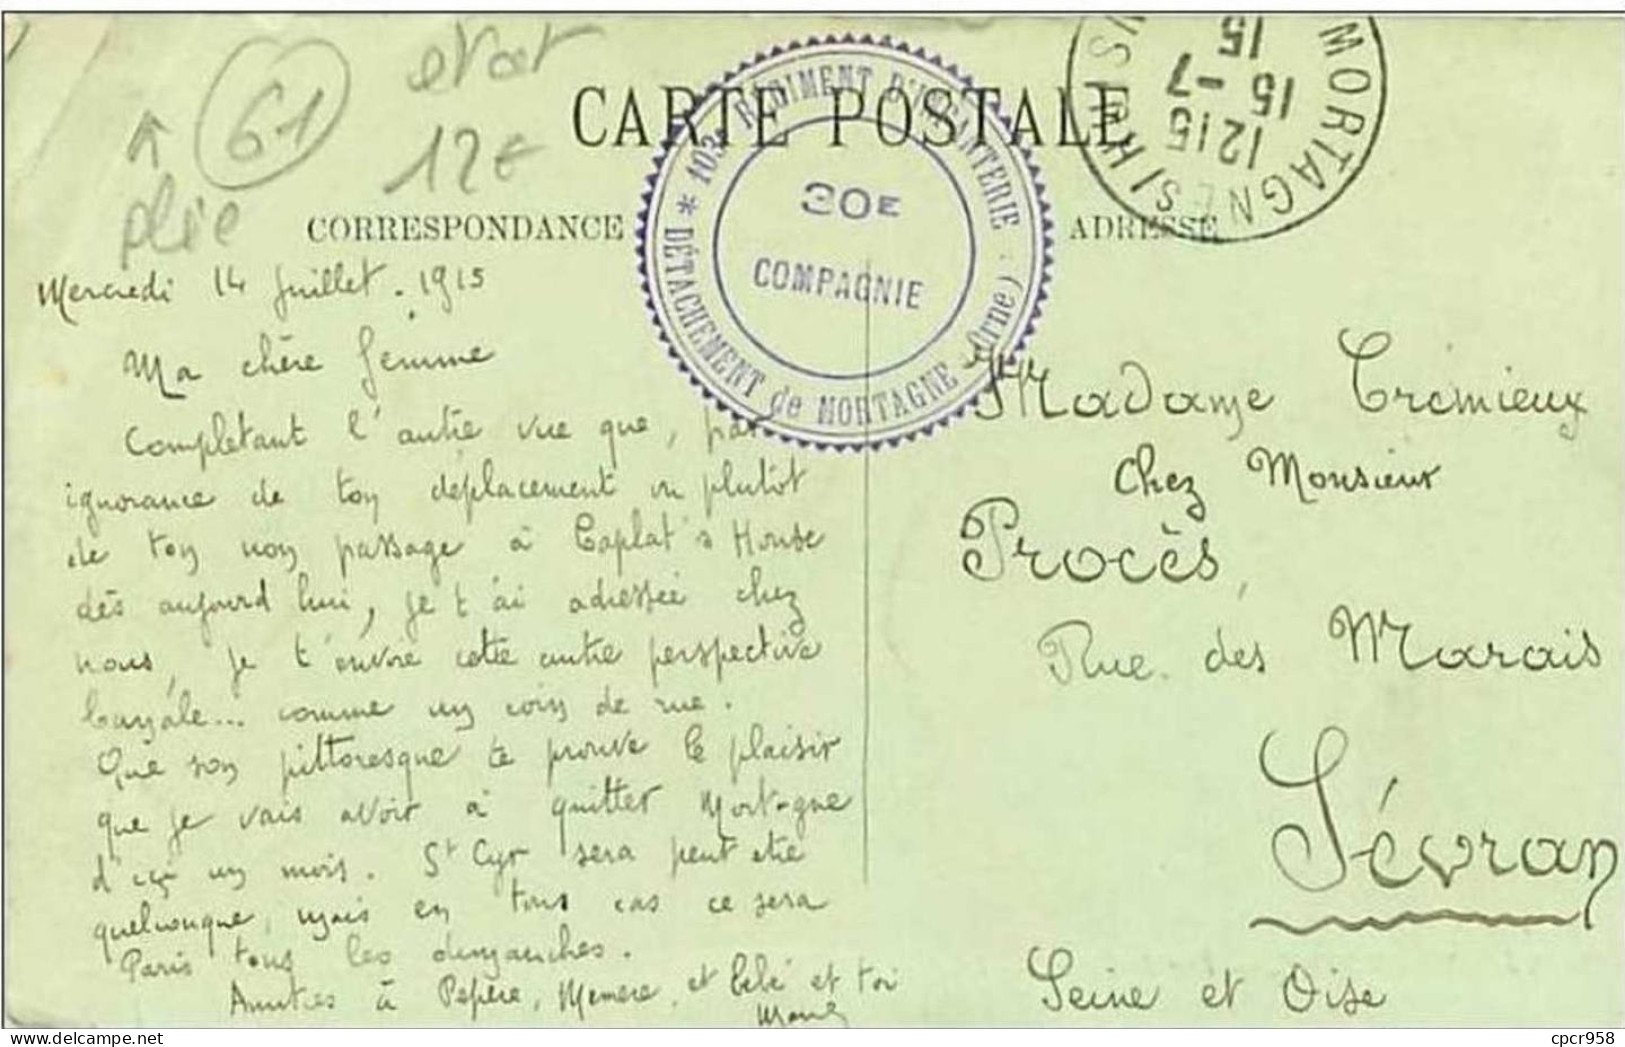 61
12€
plié
CARTE POSTALE
CORRESPONDANCE
ADRESSE
* 103e RÉGIMENT D'INFANTERIE *
DÉTACHEMENT de MORTAGNE (Orne)
30E
COMPAGNIE
MORTAGNE S/HUISNE
1215
15-7
15
Mercredi 14 Juillet. 1915
Ma chère femme
Complétant l'autre vue que, par
ignorance de ton déplacement ou plutôt
de ton non passage à Caplat's House
dès aujourd'hui, je t'ai adressée chez
nous, je t'envoie cette autre perspective
banale... comme un coin de rue.
Que son pittoresque te prouve le plaisir
que je vais avoir à quitter Mortagne
d'ici un mois. St Cyr sera peut etre
quelconque, mais en tous cas ce sera
Paris tous les dimanches.
Amitiés à Pepère, Memere, et Bébé et toi
Madame Crémieux
Chez Monsieur
Procès,
Rue des Marais
Sévran
Seine et Oise
cpcr958